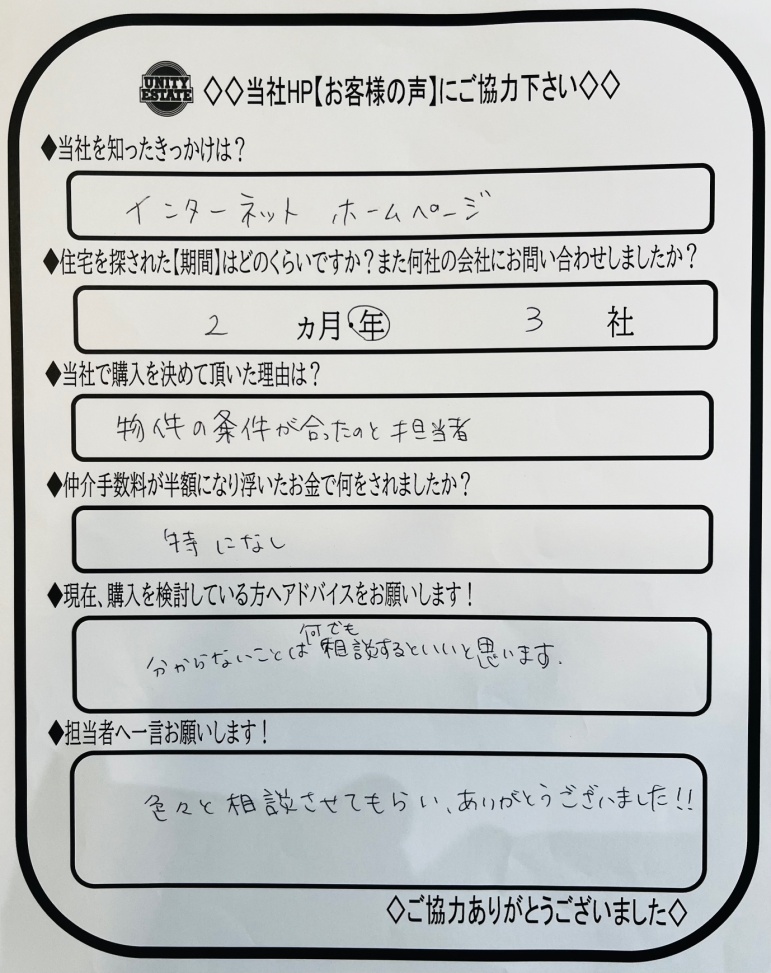 UNITY
ESTATE
◇◇当社HP【お客様の声】にご協力下さい◇◇
◆当社を知ったきっかけは?
インターネット ホームページ
◆住宅を探された【期間】はどのくらいですか?また何社の会社にお問い合わせしましたか?
2 ヵ月・年 3 社
◆当社で購入を決めて頂いた理由は?
物件の条件が合ったのと担当者
◆仲介手数料が半額になり浮いたお金で何をされましたか?
特になし
◆現在、購入を検討している方へアドバイスをお願いします!
分からないことは何でも相談するといいと思います.
◆担当者へ一言お願いします!
色々と相談させてもらい、ありがとうございました!!
◇ご協力ありがとうございました◇